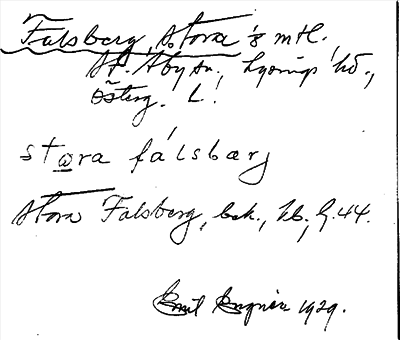 Falsberg, Stora ⅛ mtl.
St. Åby sn., Lysings hd.,
Österg. L.
stωra fálsbærj
Stora Falsberg, bek., hb., G. 44.
Emil 1929.